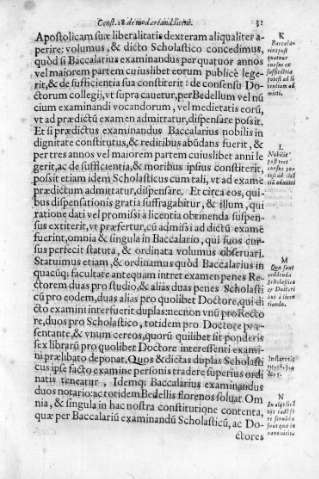 Const. 18 de modo examinandi licent. 51
Apostolicam suæ liberalitatis dexteram aliqualiter a-
perire: volumus, & dicto Scholastico concedimus,
quòd si Baccalarius examinandus per quatuor annos
vel maiorem partem cuiuslibet eorum publicè lege-
rit, & de sufficientia sua constiterit: de consensu Do-
ctorum collegij, vt supra cauetur, per Bedellum vel nũ
cium examinandi vocandorum, vel medietatis eorũ,
vt ad prædictũ examen admittatur, dispensare possit.
Et si prædictus examinandus Baccalarius nobilis in
dignitate constitutus, & reditibus abũdans fuerit, &
per tres annos vel maiorem partem cuiuslibet anni le
gerit, ac de sufficientia, & moribus ipsius constiterit,
possit etiam idem Scholasticus cum tali, vt ad examẽ
prædictum admittatur, dispensare. Et circa eos, qui-
bus dispensationis gratia suffragabitur, & illum, qui
ratione dati vel promissi à licentia obtinenda suspen-
sus extiterit, vt præfertur, cũ admissi ad dictũ exame
fuerint, omnia & singula in Baccalario, qui suos cur-
sus perfecit statuta, & ordinata volumus obseruari.
Statuimus etiam, & ordinamus quòd Baccalarius in
quacũq; facultate antequam intret examen penes Re
ctorem duas pro studio, & alias duas penes Scholasti
cũ pro eodem, duas alias pro quolibet Doctore, qui di
cto examini interfuerit duplas: necnon vnũ pro Recto
re, duos pro Scholastico, totidem pro Doctore præ-
sentante, & vnum cereos, quorũ quilibet sit ponderis
sex librarũ pro quolibet Doctore interessenti exami-
ni prælibato deponat. Quos & dictas duplas Scholasti
cus ipse facto examine personis tradere superius ordi
natis teneatur. Idemq; Baccalarius examinandus
duos notario: ac totidem Bedellis florenos soluat. Om
nia, & singula in hac nostra constitutione contenta,
quæ per Baccalariũ examinandũ Scholasticũ, ac Do-
ctores
K
Baccala-
L
M
Quę sunt
N